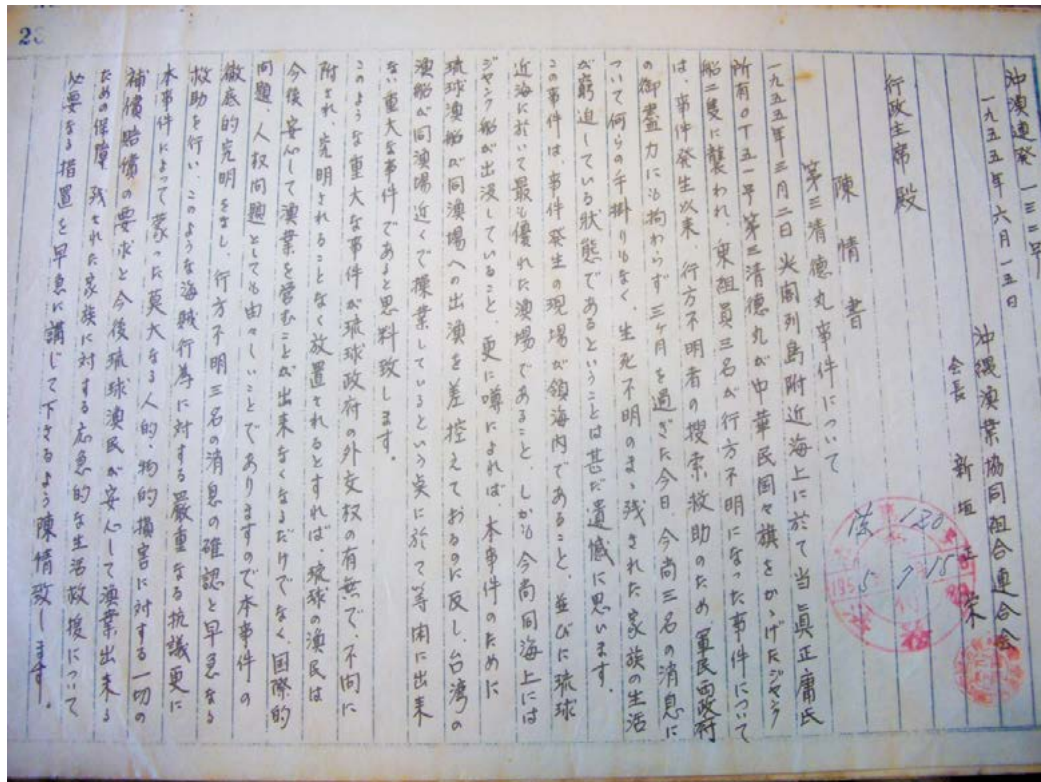 23
沖漁連発 一三二号
一九五五年六月一五日
沖縄漁業協同組合連合会
会長 新垣 栄
行政主席殿
陳情書
第三清徳丸事件について
一九五五年三月二日 尖閣列島附近海上に於て当眞正庸氏
所有OT五一号第三清徳丸が中華民国々旗をかゝげたジャンク
船二隻に襲われ、乗組員三名が行方不明になった事件について
は、事件発生以来、行方不明者の捜索救助のため、軍民両政府
の御盡力にも拘わらず三ヶ月を過ぎた今日、今尚三名の消息に
ついて何らの手掛りもなく、生死不明のまゝ残された家族の生活
が窮迫している状態であるということは甚だ遺憾に思います。
この事件は、事件発生の現場が領海内であること、並びに琉球
近海に於いて最も優れた漁場であること、しかも今尚同海上には
ジャンク船が出没していること、更に噂によれば、本事件のために
琉球漁船が同漁場への出漁を差控えておるのに反し、台湾の
漁船が同漁場近くで操業しているという矣に於て等閑に出来
ない重大な事件であると思料致します。
このような重大な事件が琉球政府の外交権の有無で、不問に
附され、究明されることなく放置されるとすれば、琉球の漁民は
今後安心して漁業を営むことが出来なくなるだけでなく、国際的
問題、人权問題としても由々しいことでありますので本事件の
徹底的究明をなし、行方不明三名の消息の確認と早急なる
救助を行い、このような海賊行為に対する厳重なる抗議更に
本事件によって蒙った莫大なる人的、物的損害に対する一切の
補償賠償の要求と今後琉球漁民が安心して漁業出来る
ための保障、残された家族に対する応急的な生活救援について
必要なる措置を早急に講じて下さるよう陳情致します。
120
5 7 15